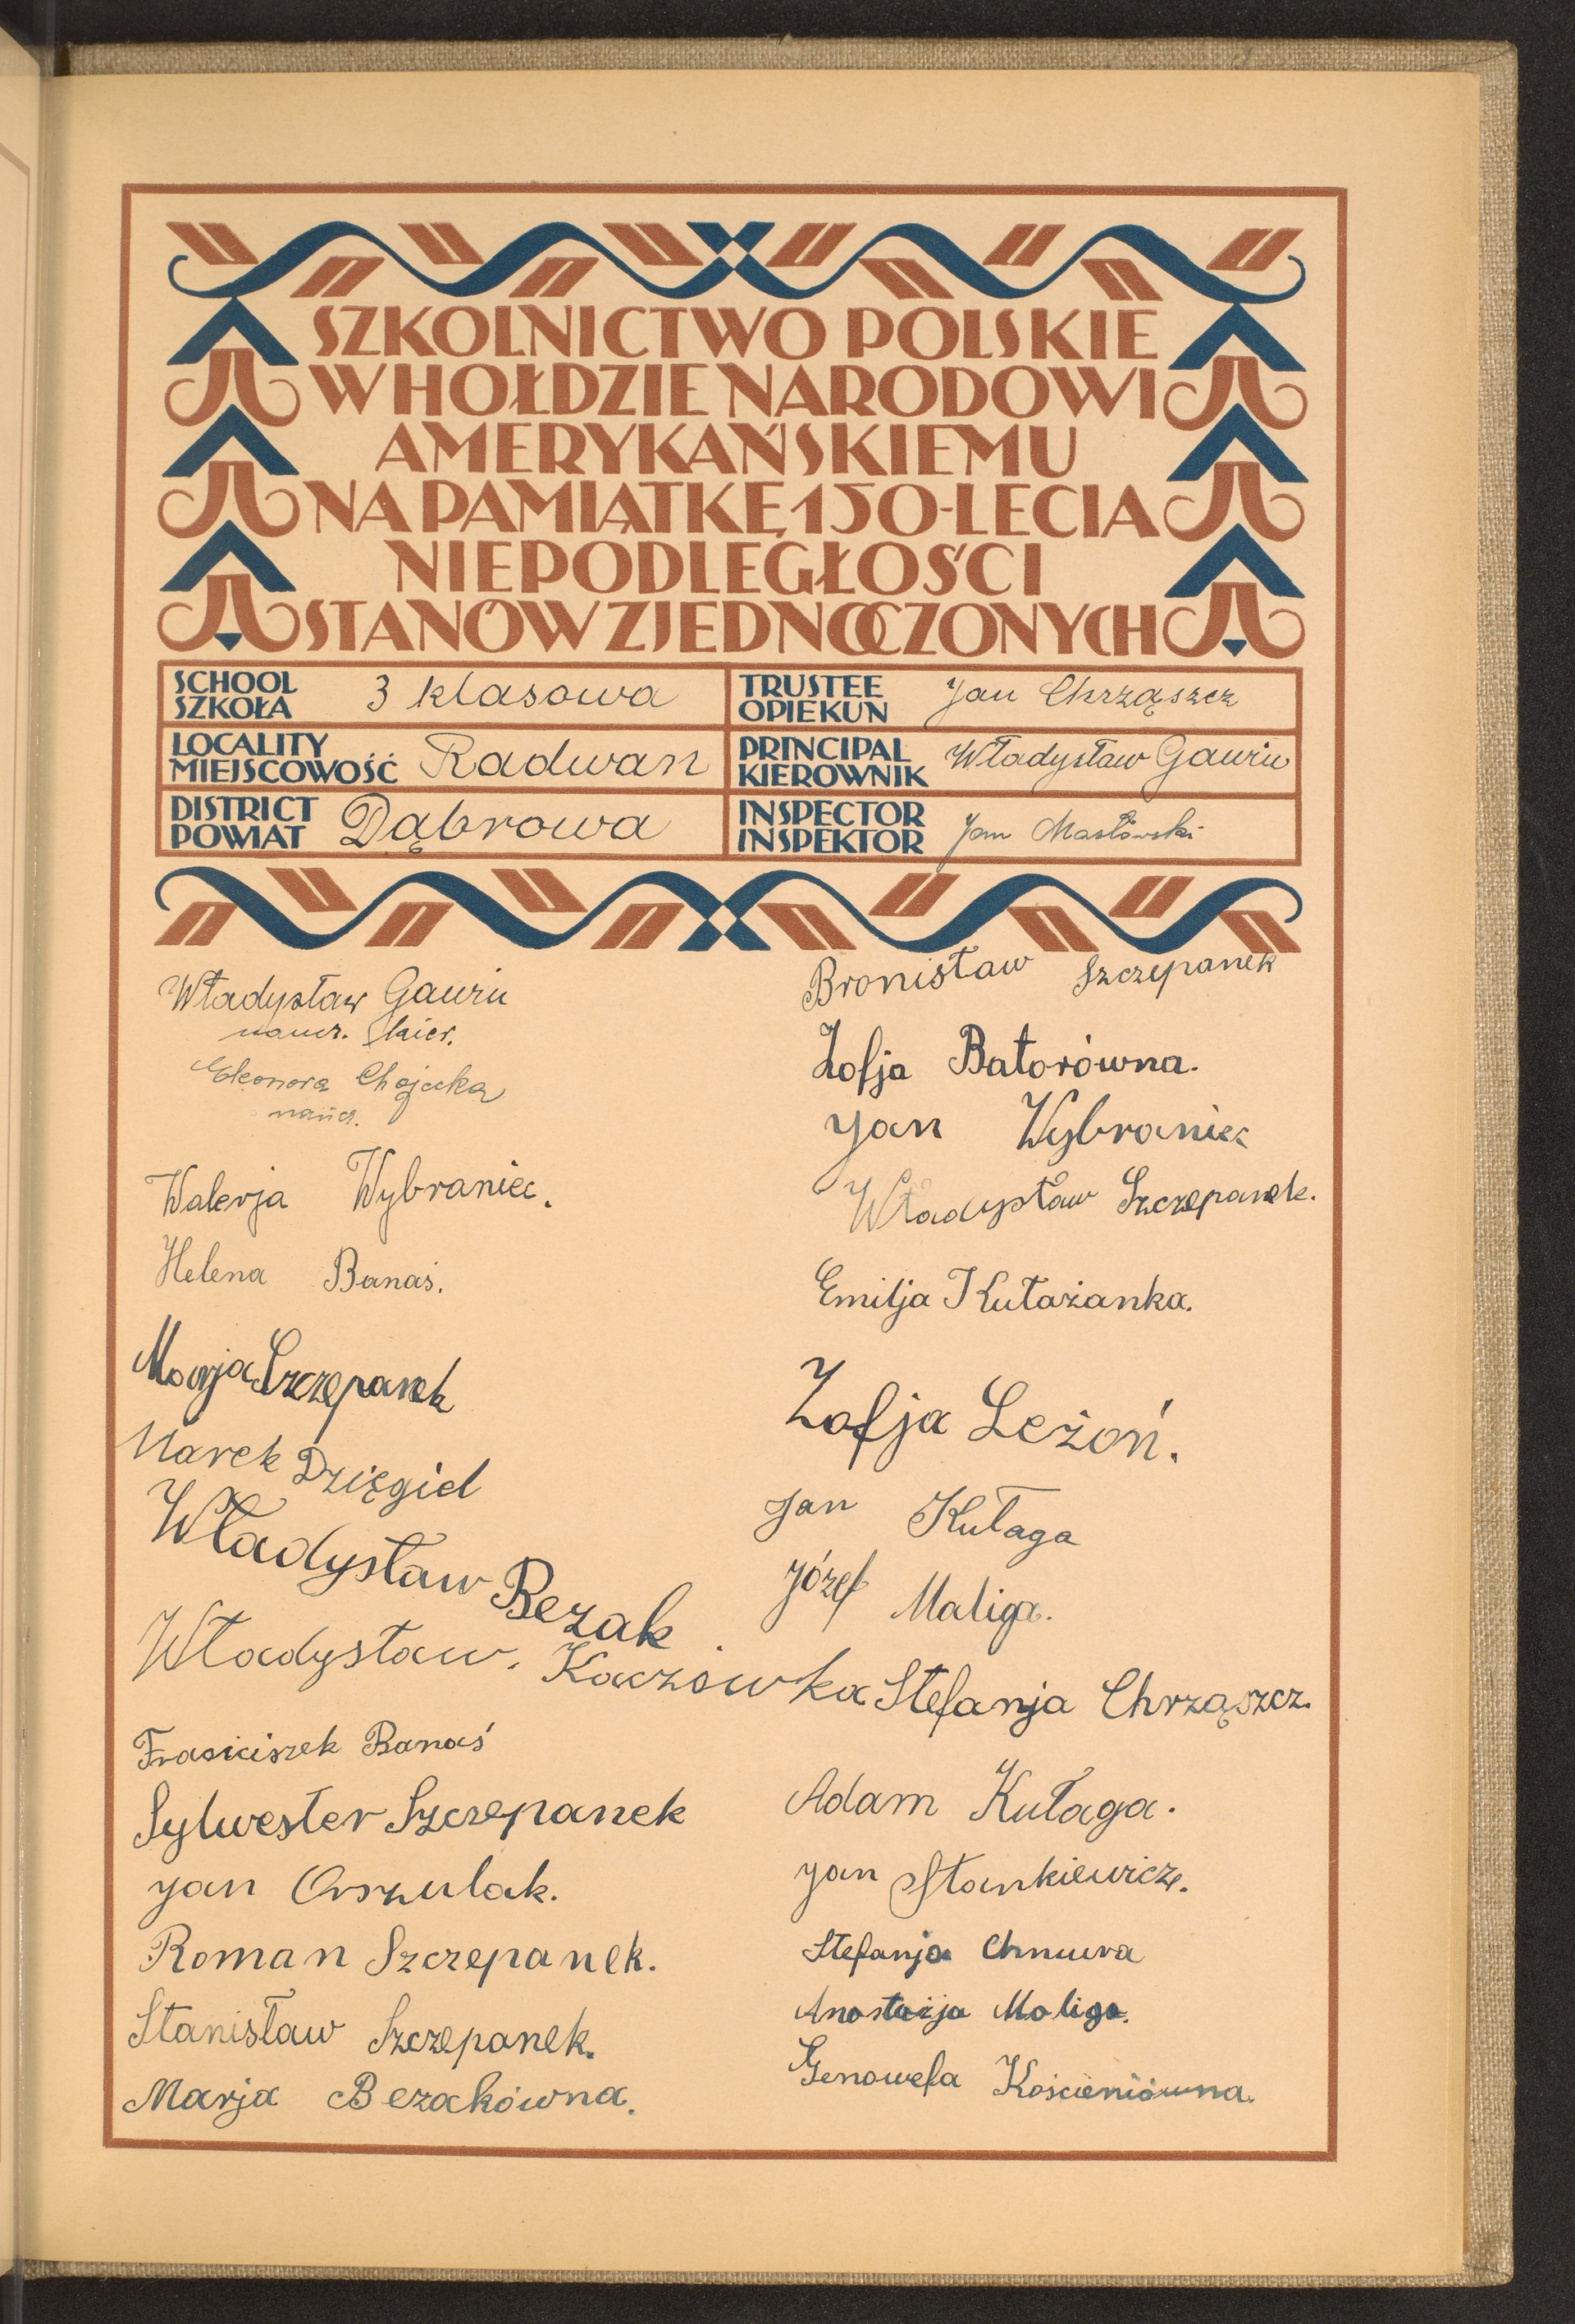 SZKOLNICTWO POLSKIE
W HOŁDZIE NARODOWI
AMERYKAŃSKIEMU
NA PAMIĄTKĘ 150-LECIA
NIEPODLEGŁOŚCI
STANÓW ZJEDNOCZONYCH
SCHOOL
SZKOŁA
3 klasowa
TRUSTEE
OPIEKUN
Jan Chrząszcz
LOCALITY
MIEJSCOWOŚĆ
Radwan
PRINCIPAL
KIEROWNIK
Władysław Gawin
DISTRICT
POWIAT
Dąbrowa
INSPECTOR
INSPEKTOR
Jan Masłowski
Władysław Gawin
naucz. kier.
Eleonora Chojecka
naucz.
Walerja Wybraniec.
Helena Banaś.
Marja Szczepanek
Marek Dzięgiel
Władysław Bezak
Władysław. Kaczówka
Franciszek Banaś
Sylwester Szczepanek
Jan Orszulak.
Roman Szczepanek.
Stanisław Szczepanek.
Marja Bezakówna.
Bronisław Szczepanek
Zofja Batorówna.
Jan Wybraniec
Władysław Szczepanek.
Emilja Kułażanka.
Zofja Leżoń.
Jan Kułaga
Józef Maliga.
Stefanja Chrząszcz.
Adam Kułaga.
Jan Stankiewicz.
Stefanja Chmura
Anastazja Maliga.
Genowefa Kościeniówna.